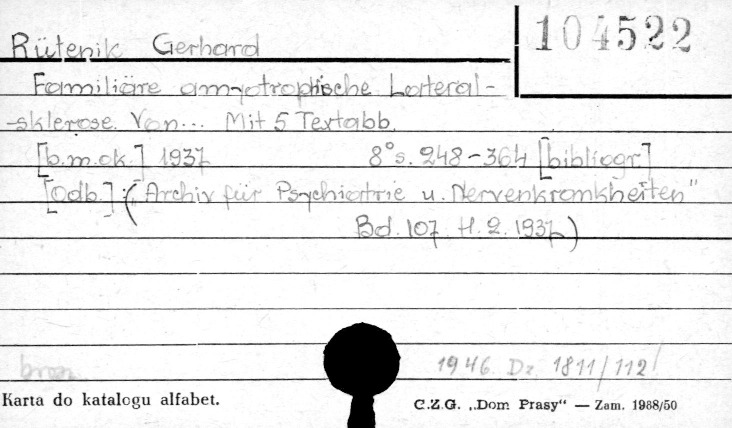 104522
Rütenik Gerhard
Familiäre amyotrophische Lateral-
-sklerose. Von... Mit 5 Textabb.
[b.m.ok.] 1937 8° s. 248-364 [bibliogr.]
[Odb.]: ("Archiv für Psychiatrie u. Nervenkrankheiten"
Bd. 107. H. 2. 1937)
brosz.
1946. Dz. 1811/112
Karta do katalogu alfabet.
C.Z.G. „Dom Prasy“ — Zam. 1988/50